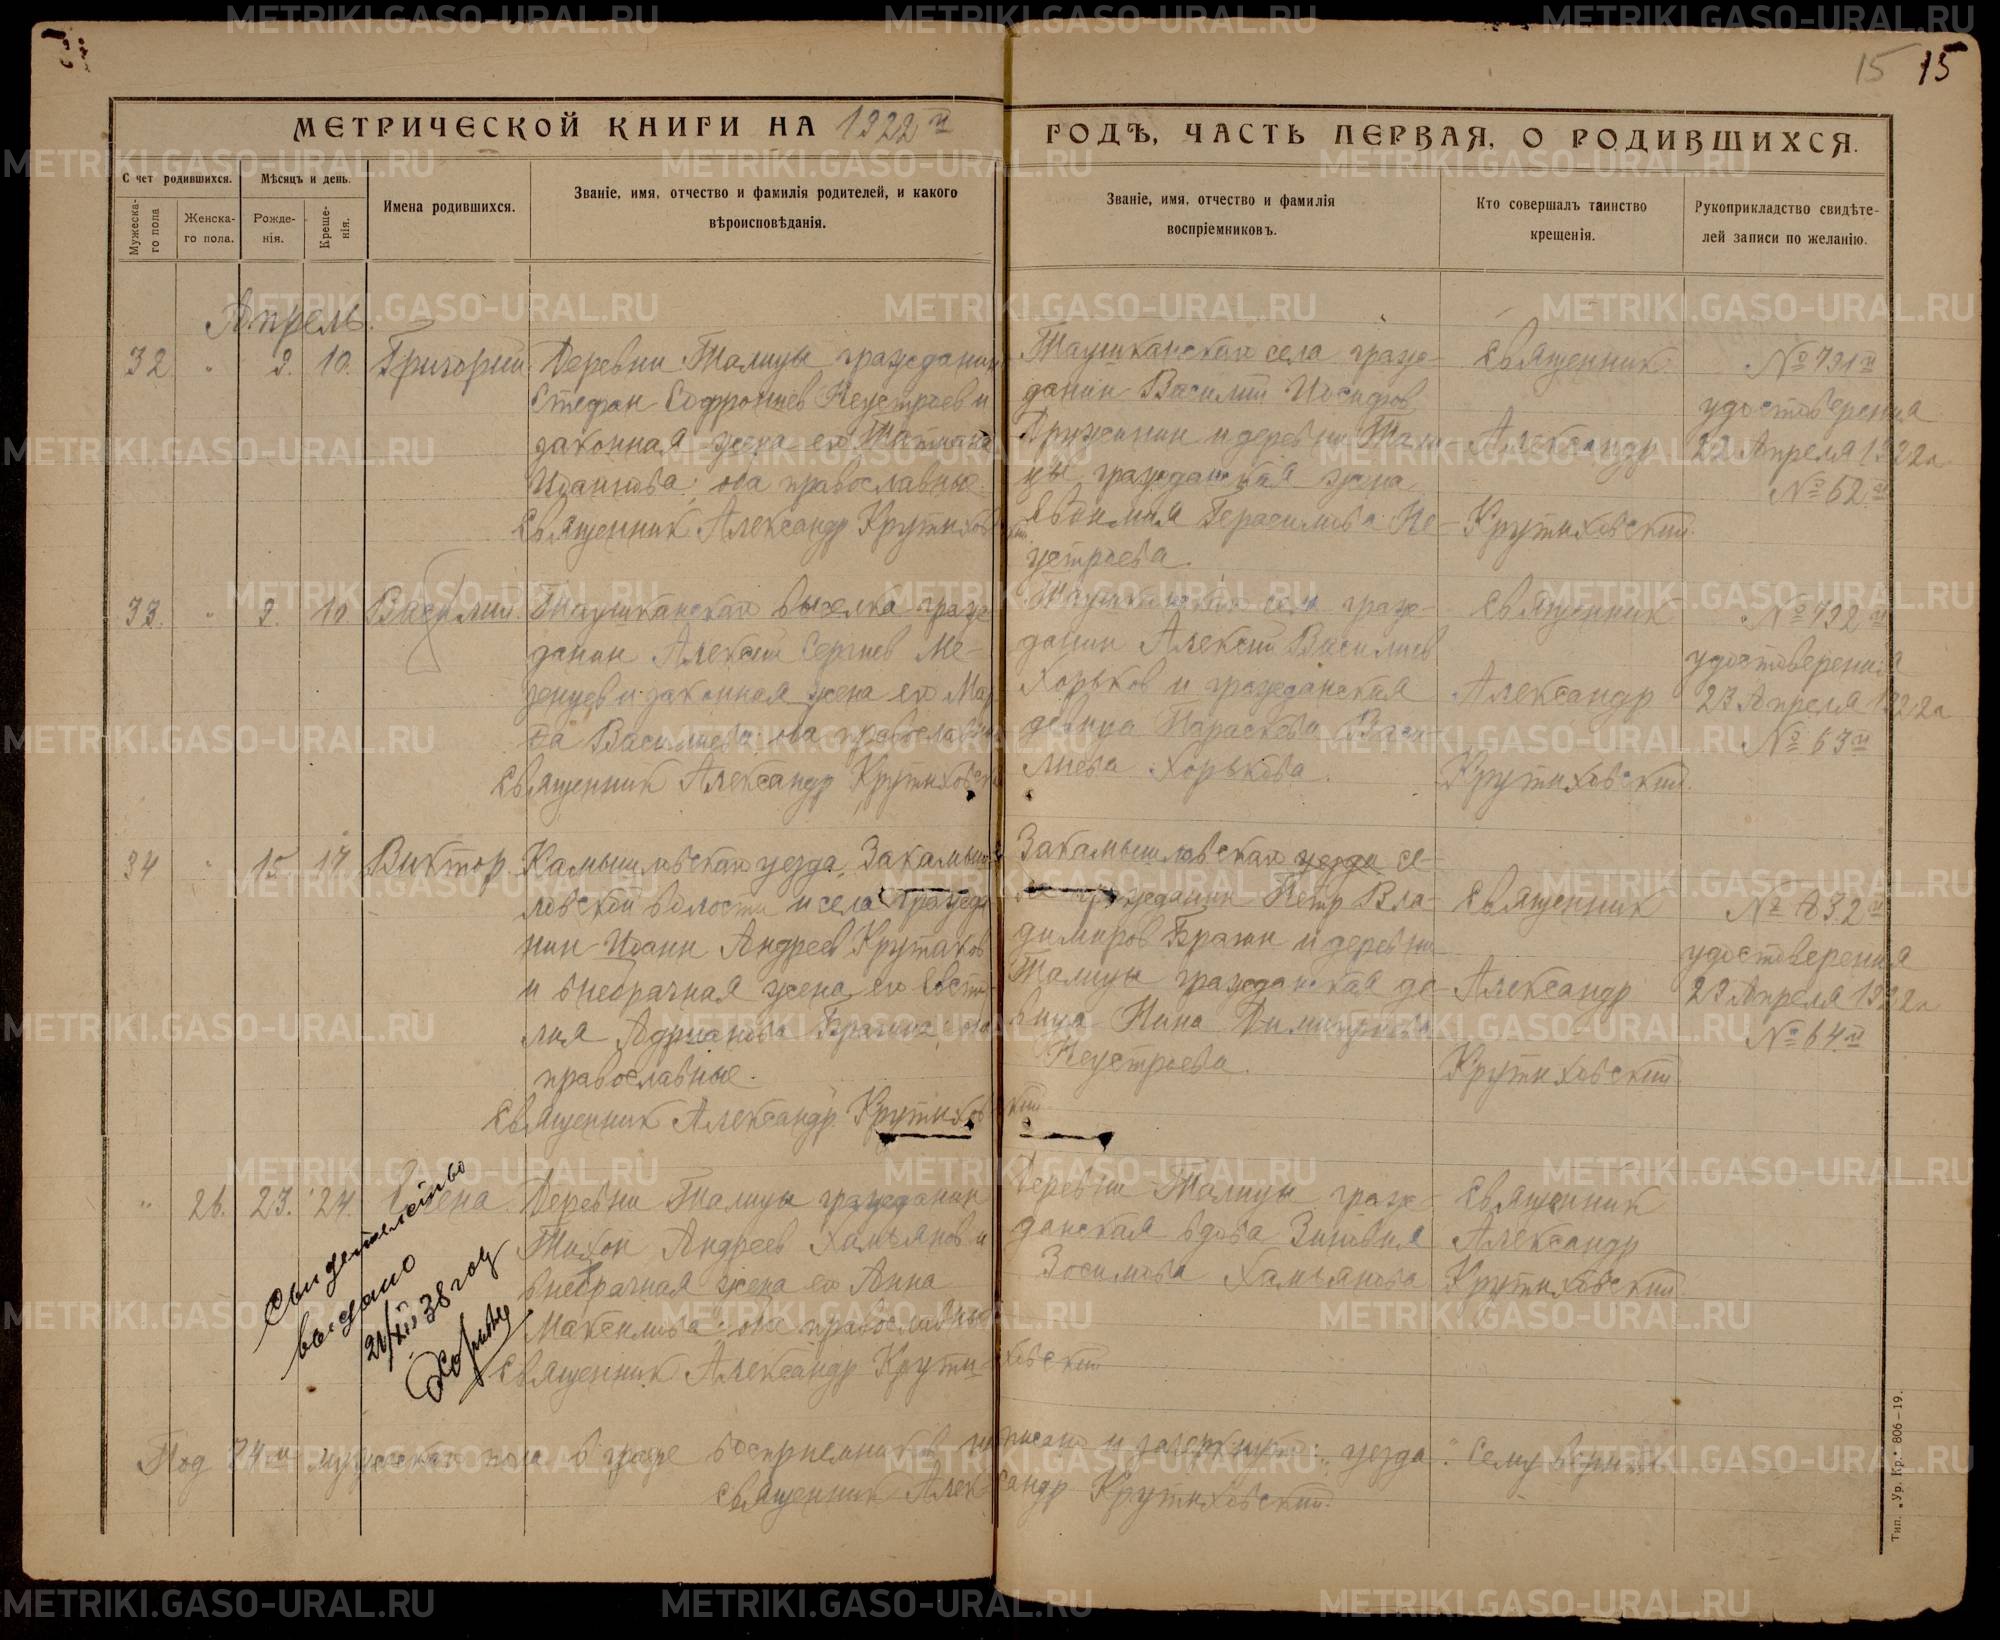 15 15
МЕТРИЧЕСКОЙ КНИГИ НА 1922 й ГОДЪ, ЧАСТЬ ПЕРВАЯ, О РОДИВШИХСЯ.
Счет родившихся.
Мужеска-
го пола
Женска-
го пола.
Мѣсяцъ и день.
Рожде-
нія.
Креще-
нія.
Имена родившихся.
Званіе, имя, отчество и фамилія родителей, и какого
вѣроисповѣданія.
Званіе, имя, отчество и фамилія
воспріемниковъ.
Кто совершалъ таинство
крещенія.
Рукоприкладство свидѣте-
лей записи по желанію.
Апрель.
32 " 9. 10. Григорий
Деревни Талицы гражданин
Стефан Софрониев Неустроев и
законная жена его Татиана
Иоаннова; оба православные.
Священник Александр Крутиховский
Таушканскаго села граж-
данин Василий Иосифов
Дружинин и деревни Тали
цы гражданская жена
Евфимия Герасимова Не-
устроева.
Священник
Александр
Крутиховский.
№ 731 й
удостоверения
22 Апреля 1922 г.
№ 62 й
33. " 9. 10 Василий.
Таушканскаго выселка граж-
данин Алексий Сергиев Ме-
зенцев и законная жена его Мар
фа Василиева; оба православные
Священник Александр Крутиховский
Таушканскаго села граж-
данин Алексий Василиев
Хорьков и гражданская
девица Параскева Васи-
лиева Хорькова.
Священник
Александр
Крутиховский.
№ 732 й
удостоверения
23 Апреля 1922 г.
№ 63 й
34 " 15. 17. Виктор.
Камышловскаго уезда, Закамыш-
ловской волости и села гражда
нин Иоанн Андреев Крутаков
и внебрачная жена его Евсто
лия Адрианова Брагина, оба
православные.
Священник Александр Крутиховский
Закамышловскаго уезда се-
ла гражданин Петр Вла-
димиров Брагин и деревни
Талицы гражданская де-
вица Нина Димитриева
Неустроева.
Священник
Александр
Крутиховский.
№ 832 й
удостоверения
29 Апреля 1922 г.
№ 64 й
" 26. 23. 24. Елена.
Деревни Талицы гражданин
Тихон Андреев Хамьянов и
внебрачная жена его Анна
Максимова; оба православные
Священник Александр Крутиховский
Деревни Талицы граж-
данская вдова Зиновия
Зосимова Хамьянова
Священник
Александр
Крутиховский.
Свидетельство
выдано
21/XII 38 год
Под 34 м мужескаго пола в графе восприемников написано и зачеркнуто: "уезда". Сему верить
Священник Александр Крутиховский.
Тип. „Ур. Кр.“ 806—19.
METRIKI.GASO-URAL.RU